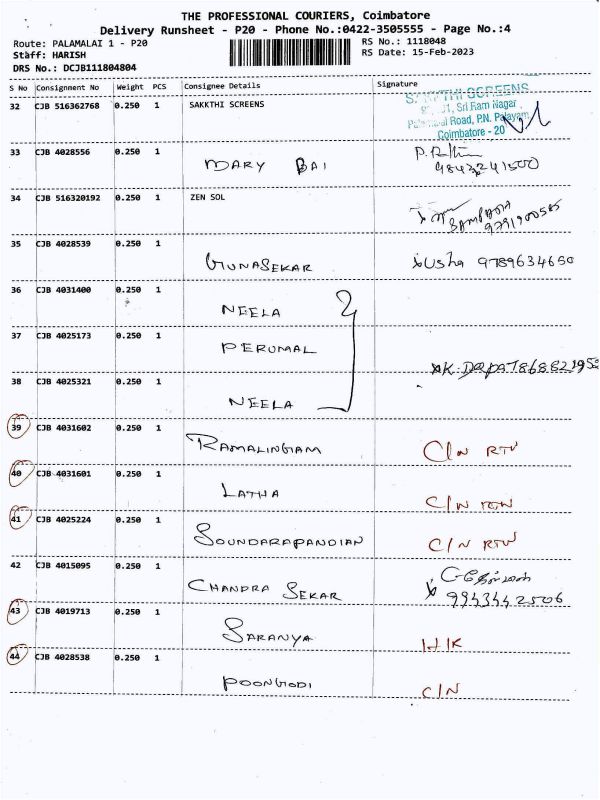 THE PROFESSIONAL COURIERS, Coimbatore
Delivery Runsheet - P20 - Phone No.:0422-3505555 - Page No.:4
Route: PALAMALAI 1 - P20
RS No.: 1118048
Staff: HARISH
RS Date: 15-Feb-2023
DRS No.: DCJB111804804
S No Consignment No Weight PCS Consignee Details Signature
32 CJB 516362768 0.250 1 SAKKTHI SCREENS
SAKTHI SCREENS
Sri Ram Nagar,
Road, P.N. Palayam
Coimbatore - 20
33 CJB 4028556 0.250 1 MARY BAI
9843241500
34 CJB 516320192 0.250 1 ZEN SOL
35 CJB 4028539 0.250 1 GUNASEKAR Usha 9789634650
36 CJB 4031400 0.250 1 NEELA
37 CJB 4025173 0.250 1 PERUMAL
38 CJB 4025321 0.250 1 NEELA
39 CJB 4031602 0.250 1 RAMALINGAM C/N RTN
40 CJB 4031601 0.250 1 LATHA C/N RTN
41 CJB 4025224 0.250 1 SOUNDARAPANDIAN C/N RTN
42 CJB 4015095 0.250 1 CHANDRA SEKAR
9943442506
43 CJB 4019713 0.250 1 SARANYA H/K
44 CJB 4028538 0.250 1 POONGODI C/N